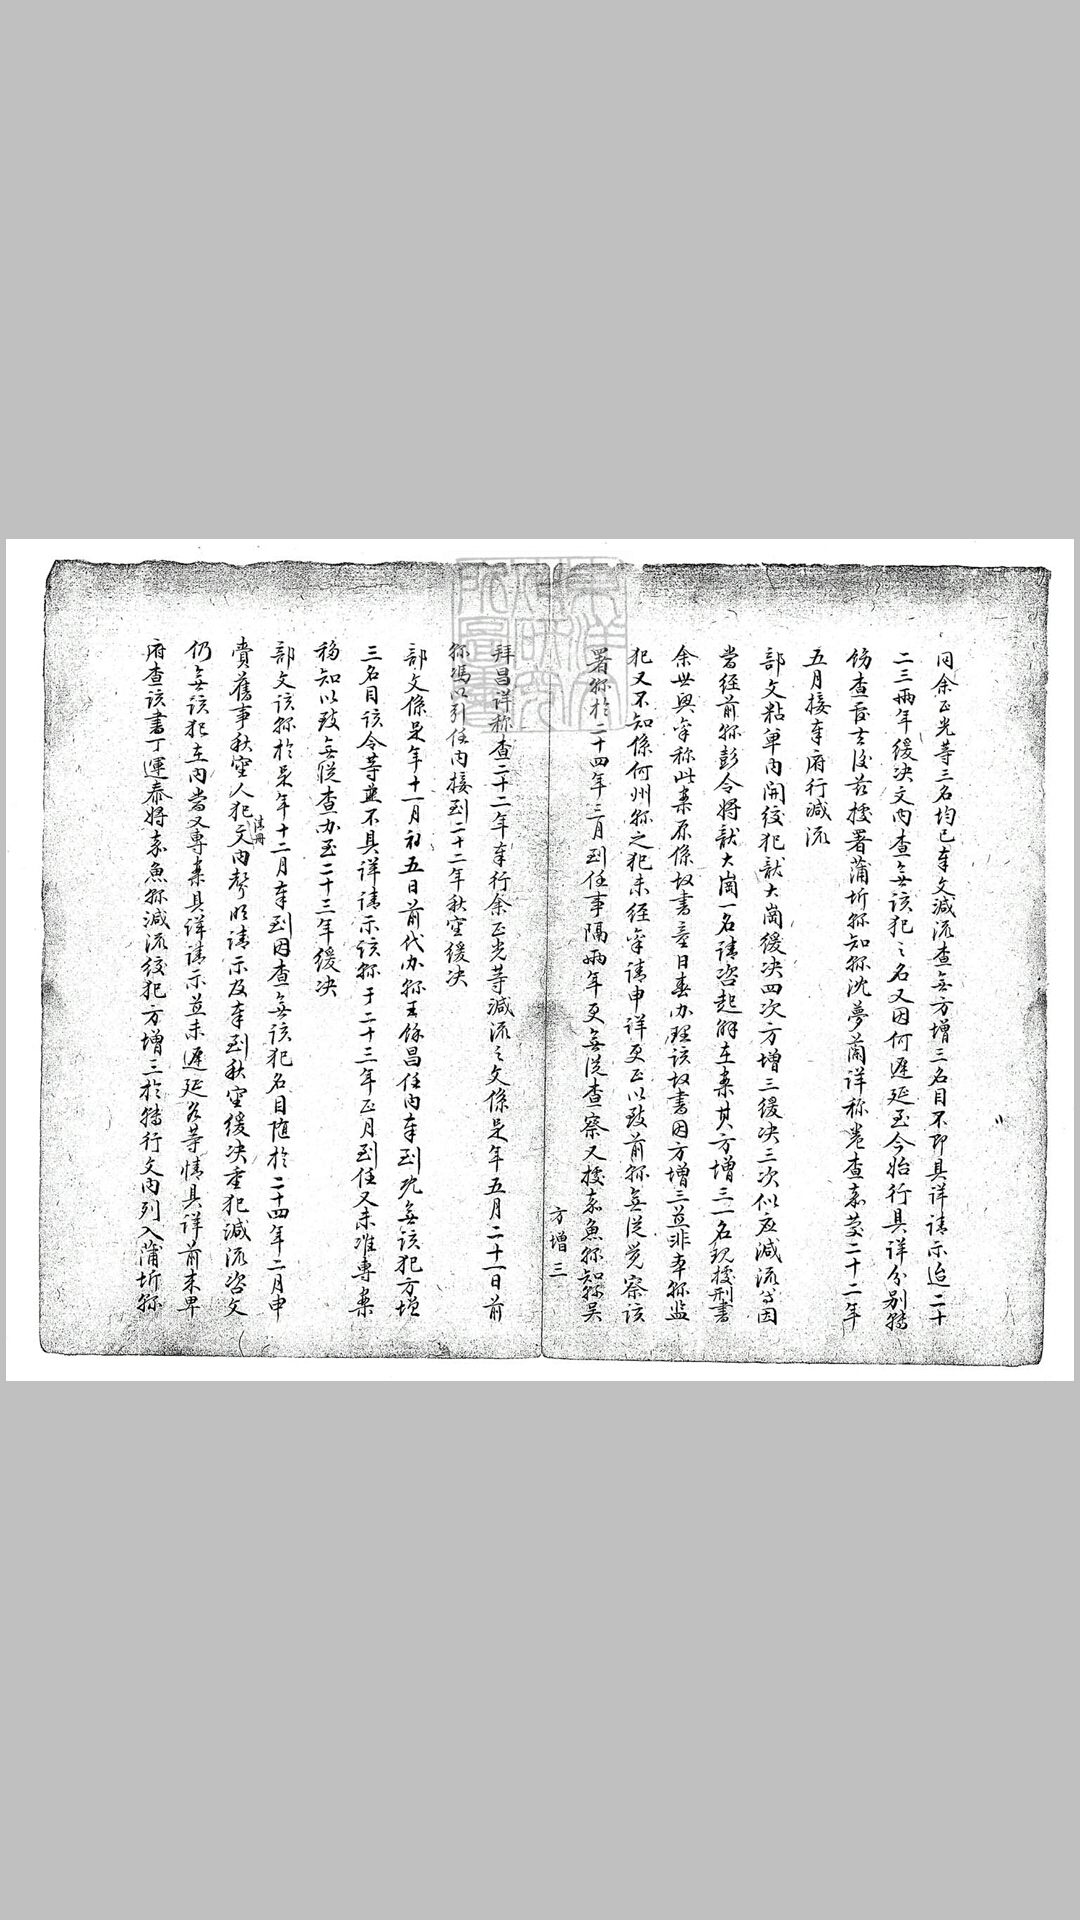 同余正光等三名均已奉文減流查無方增三名目不即具詳請示迨二十
二三兩年緩决文內查無該犯之名又因何遲延至今始行具詳分别轉
飭查覆去後茲據署蒲圻縣知縣沈夢蘭詳称卷查嘉慶二十二年
五月接奉府行減流
部文粘單內開絞犯龔大崗緩决四次方增三緩决三次似应減流等因
當经前縣彭令將龔大崗一名請咨起解在案其方增三一名現據刑書
余世興稟称此案原係故書童日泰办理該故書因方增三並非本縣监
犯又不知係何州縣之犯未经稟請申詳更正以致前縣無從觉察該
署縣於二十四年三月到任事隔兩年更無從查察又據嘉魚縣知縣吴
方增三
拜昌詳称查二十二年奉行余正光等減流之文係是年五月二十一日前
縣馮以引任內接到二十二年秋審緩决
部文係是年十一月初五日前代办縣王餘昌任內奉到既無該犯方增
三名目該令等並不具詳請示該縣于二十三年正月到任又未准專案
移知以致無從查办至二十三年緩决
部文該縣於是年十二月奉到因查無該犯名目随於二十四年二月申
賫舊事秋審人犯清冊文內聲明請示及奉到秋審緩决重犯減流咨文
仍無該犯在內當又專案具詳請示並未遲延各等情具詳前来卑
府查該書丁運泰將嘉魚縣減流絞犯方增三於轉行文內列入蒲圻縣